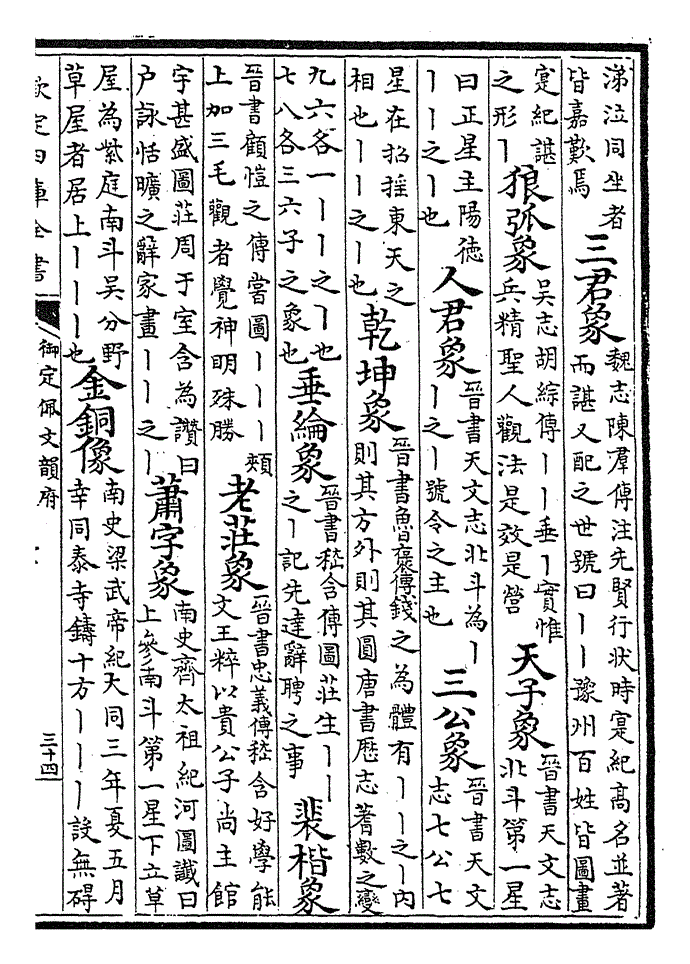 涕泣同坐者
皆嘉歎焉
三君象
魏志陳羣傳注先賢行状時寔紀高名並著
而諶又配之世號曰丨丨豫州百姓皆圖畫
寔紀諶
之形丨
狼弧象
吳志胡綜傳丨丨垂丨實惟
兵精聖人觀法是效是營
天子象
晉書天文志
北斗第一星
曰正星主陽徳
丨丨之丨也
人君象
晉書天文志北斗為丨
丨之丨號令之主也
三公象
晉書天文
志七公七
星在招揺東天之
相也丨丨之丨也
乾坤象
晉書魯褒傳錢之為體有丨丨之丨内
則其方外則其圓唐書歴志蓍數之變
九六各一丨丨之丨也
七八各三六子之象也
垂綸象
晉書嵇含傳圖莊生丨丨
之丨記先達辭聘之事
裴楷象
晉書顧愷之傳當圖丨丨丨頰
上加三毛觀者覺神明殊勝
老莊象
晉書忠義傳嵇含好學能
文王粹以貴公子尚主館
宇甚盛圖莊周于室含為讚曰
户詠恬曠之辭家畫丨丨之丨
蕭字象
南史齊太祖紀河圖讖曰
上參南斗第一星下立草
屋為紫庭南斗吳分野
草屋者居上丨丨丨也
金銅像
南史梁武帝紀大同三年夏五月
幸同泰寺鑄十方丨丨丨設無碍
欽定四庫全書
御定佩文韻府
三十四